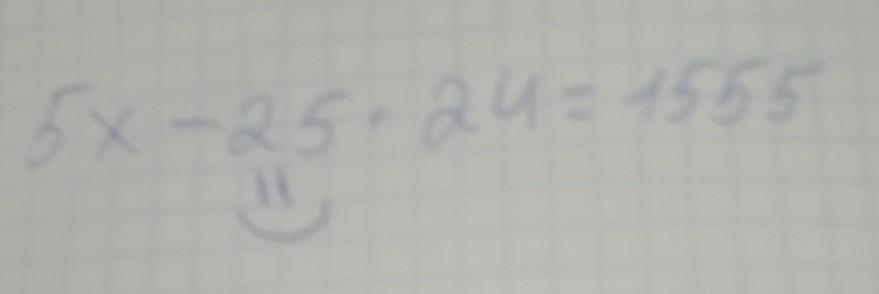 5x - 25 · 24 = 1555